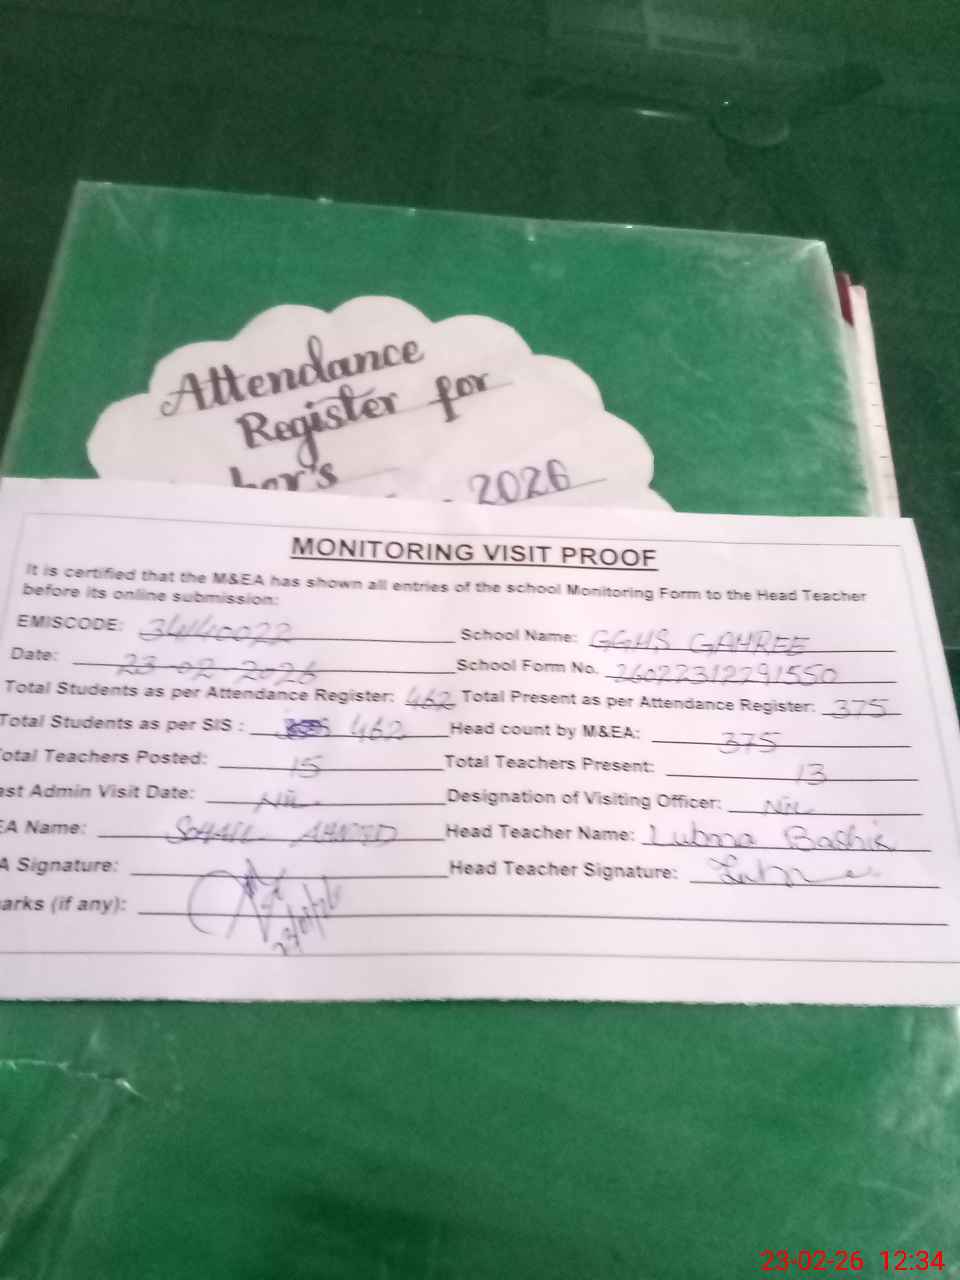 Attendance
Register for
her's
2026
MONITORING VISIT PROOF
It is certified that the M&EA has shown all entries of the school Monitoring Form to the Head Teacher
before its online submission:
EMISCODE: 34440022 School Name: GGHS GAHREE
Date: 23-02-2026 School Form No. 26022312291550
Total Students as per Attendance Register: 462 Total Present as per Attendance Register: 375
Total Students as per SIS : 462 Head count by M&EA: 375
otal Teachers Posted: 15 Total Teachers Present: 13
ast Admin Visit Date: Nil Designation of Visiting Officer: Nil
EA Name: SOHAIL AHMED Head Teacher Name: Lubna Bashir
A Signature: Head Teacher Signature:
arks (if any):
23-02-26 12:34